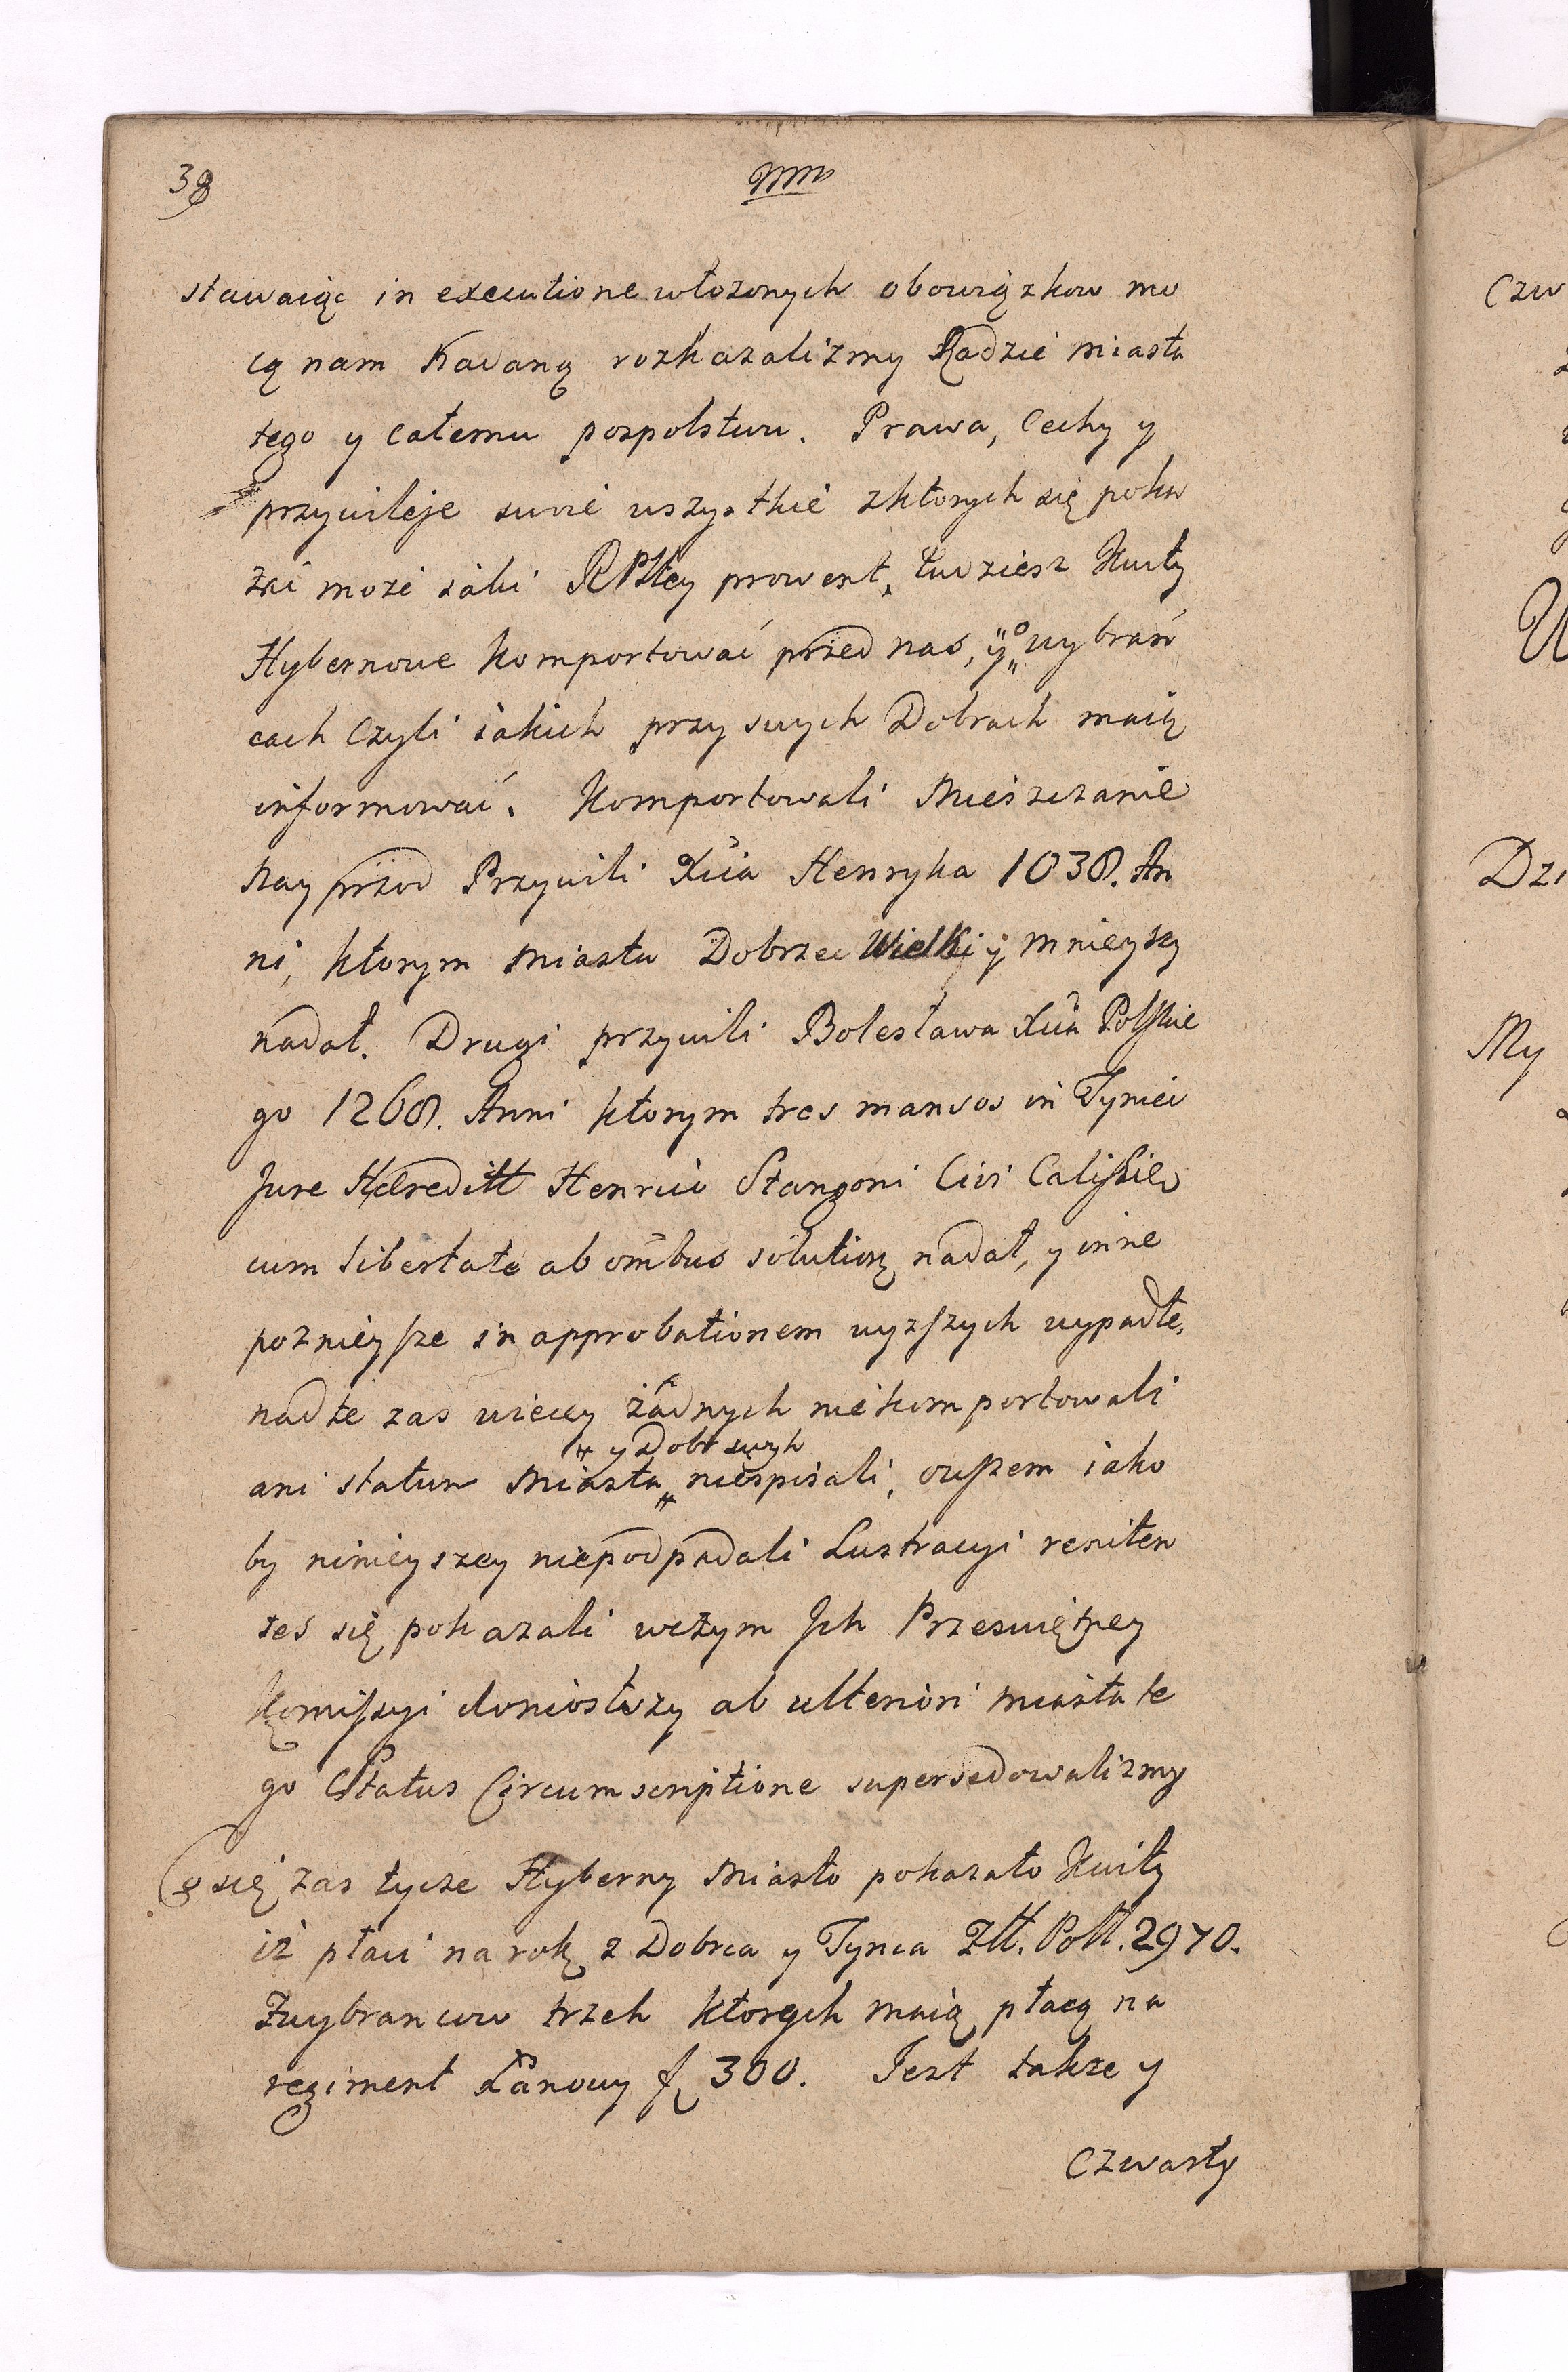 38
stawaiąc in executione włozonych obowiązkow mo
cą nam nadaną rozkazalizmy Radzie miasta
tego y całemu pospolstwu. Prawa, Cechy y
przywileje swoie wszystkie zktorych się poka
zać może iaki RPltey prowent, tudziesz Kwity
Hybernowe komportować przed nas, y o wybrań
cach czyli iakich przy swych Dobrach maią
informować. Komportowali Mieszczanie
Nayprzod Przywili Xcia Henryka 1038. An
ni, ktorym Miastu Dobrzec Wielki y mnieyszy
nadał. Drugi przywili Bolesława Xcia Polskie
go 1268. Anni ktorym tres mansos in Tyniec
Jure Hereditt Henrici Stangoni Civi Calissie
cum libertate ab ombus solution nadał, y inne
poznieysze in approbationem wyzszych wypadłe,
nadte zas wiecey żadnych niekomportowali
y Dobr swych
ani statum Miasta niespisali, owszem iako
by ninieyszey niepodpadali Lustracyi reniten
tes się pokazali wczym Ich Przeswiętney
Komissyi doniosłszy ab ulteriori miasta te
go Status Circumscriptione supersedowalizmy
Co się zas tycze Hyberny Miasto pokazało Kwity
iż płaci na rok z Dobrca y Tynca Złł. Poll. 2970.
Zwybrancow trzech ktorych maią płacą na
regiment Łanowy f 300. Jest także y
czwarty
Czw
Dzi
My